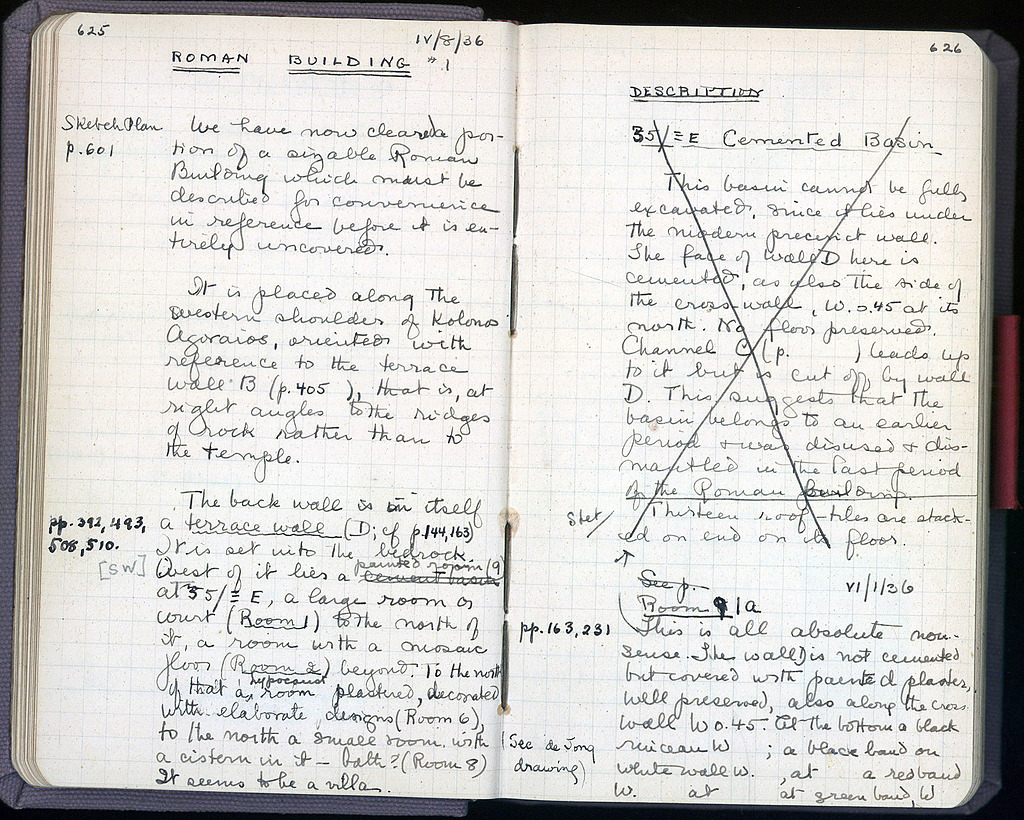 625
IV/8/36
ROMAN BUILDING #1
Sketch Plan
p. 601
We have now cleared a por-
tion of a sizable Roman
Building which must be
described for convenience
in reference before it is en-
tirely uncovered.
It is placed along the
western shoulder of Kolonos
Agoraios, oriented with
reference to the terrace
wall B (p. 405 ), that is, at
right angles to the ridges
of rock rather than to
the temple.
The back wall is in itself
pp. 392, 493,
508, 510.
[SW]
a terrace wall (D; cf p. 144, 163)
It is set into the bedrock.
West of it lies a cement basin
painted room (9)
at 35/≡ E, a large room or
court (Room 1) to the north of
it, a room with a mosaic
floor (Room 2) beyond. To the north
of that a hypocaust room plastered, decorated
with elaborate designs (Room 6),
to the north a small room with
a cistern in it – bath? (Room 8)
It seems to be a villa.
626
DESCRIPTION
35/≡ E Cemented Basin
This basin cannot be fully
excavated, since it lies under
the modern precinct wall.
The face of wall D here is
cemented, as also the side of
the cross wall, W. 0.45 at its
north. No floor preserved.
Channel C (p. ) leads up
to it but is cut off by wall
D. This suggests that the
basin belongs to an earlier
period & was disused & dis-
mantled in the last period
of the Roman building.
Stet/
Thirteen roof-tiles are stack-
ed on end on its floor.
See p.
VI/1/36
Room 9 1a
pp. 163, 231
This is all absolute non-
sense. The wall D is not cemented
but covered with painted plaster,
well preserved, also along the cross
wall W 0.45. At the bottom a black
(See de Jong
drawing)
rinceau W ; a black band on
white wall W. , at a red band
W. at at green band, W